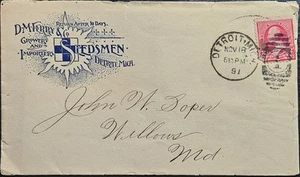 RETURN AFTER 10 DAYS.
D.M. FERRY & CO
GROWERS AND
IMPORTERS
SEEDSMEN
DETROIT, MICH.
DETROIT, MICH.
NOV 18
PM
91
John W. Soper
Willows
Md